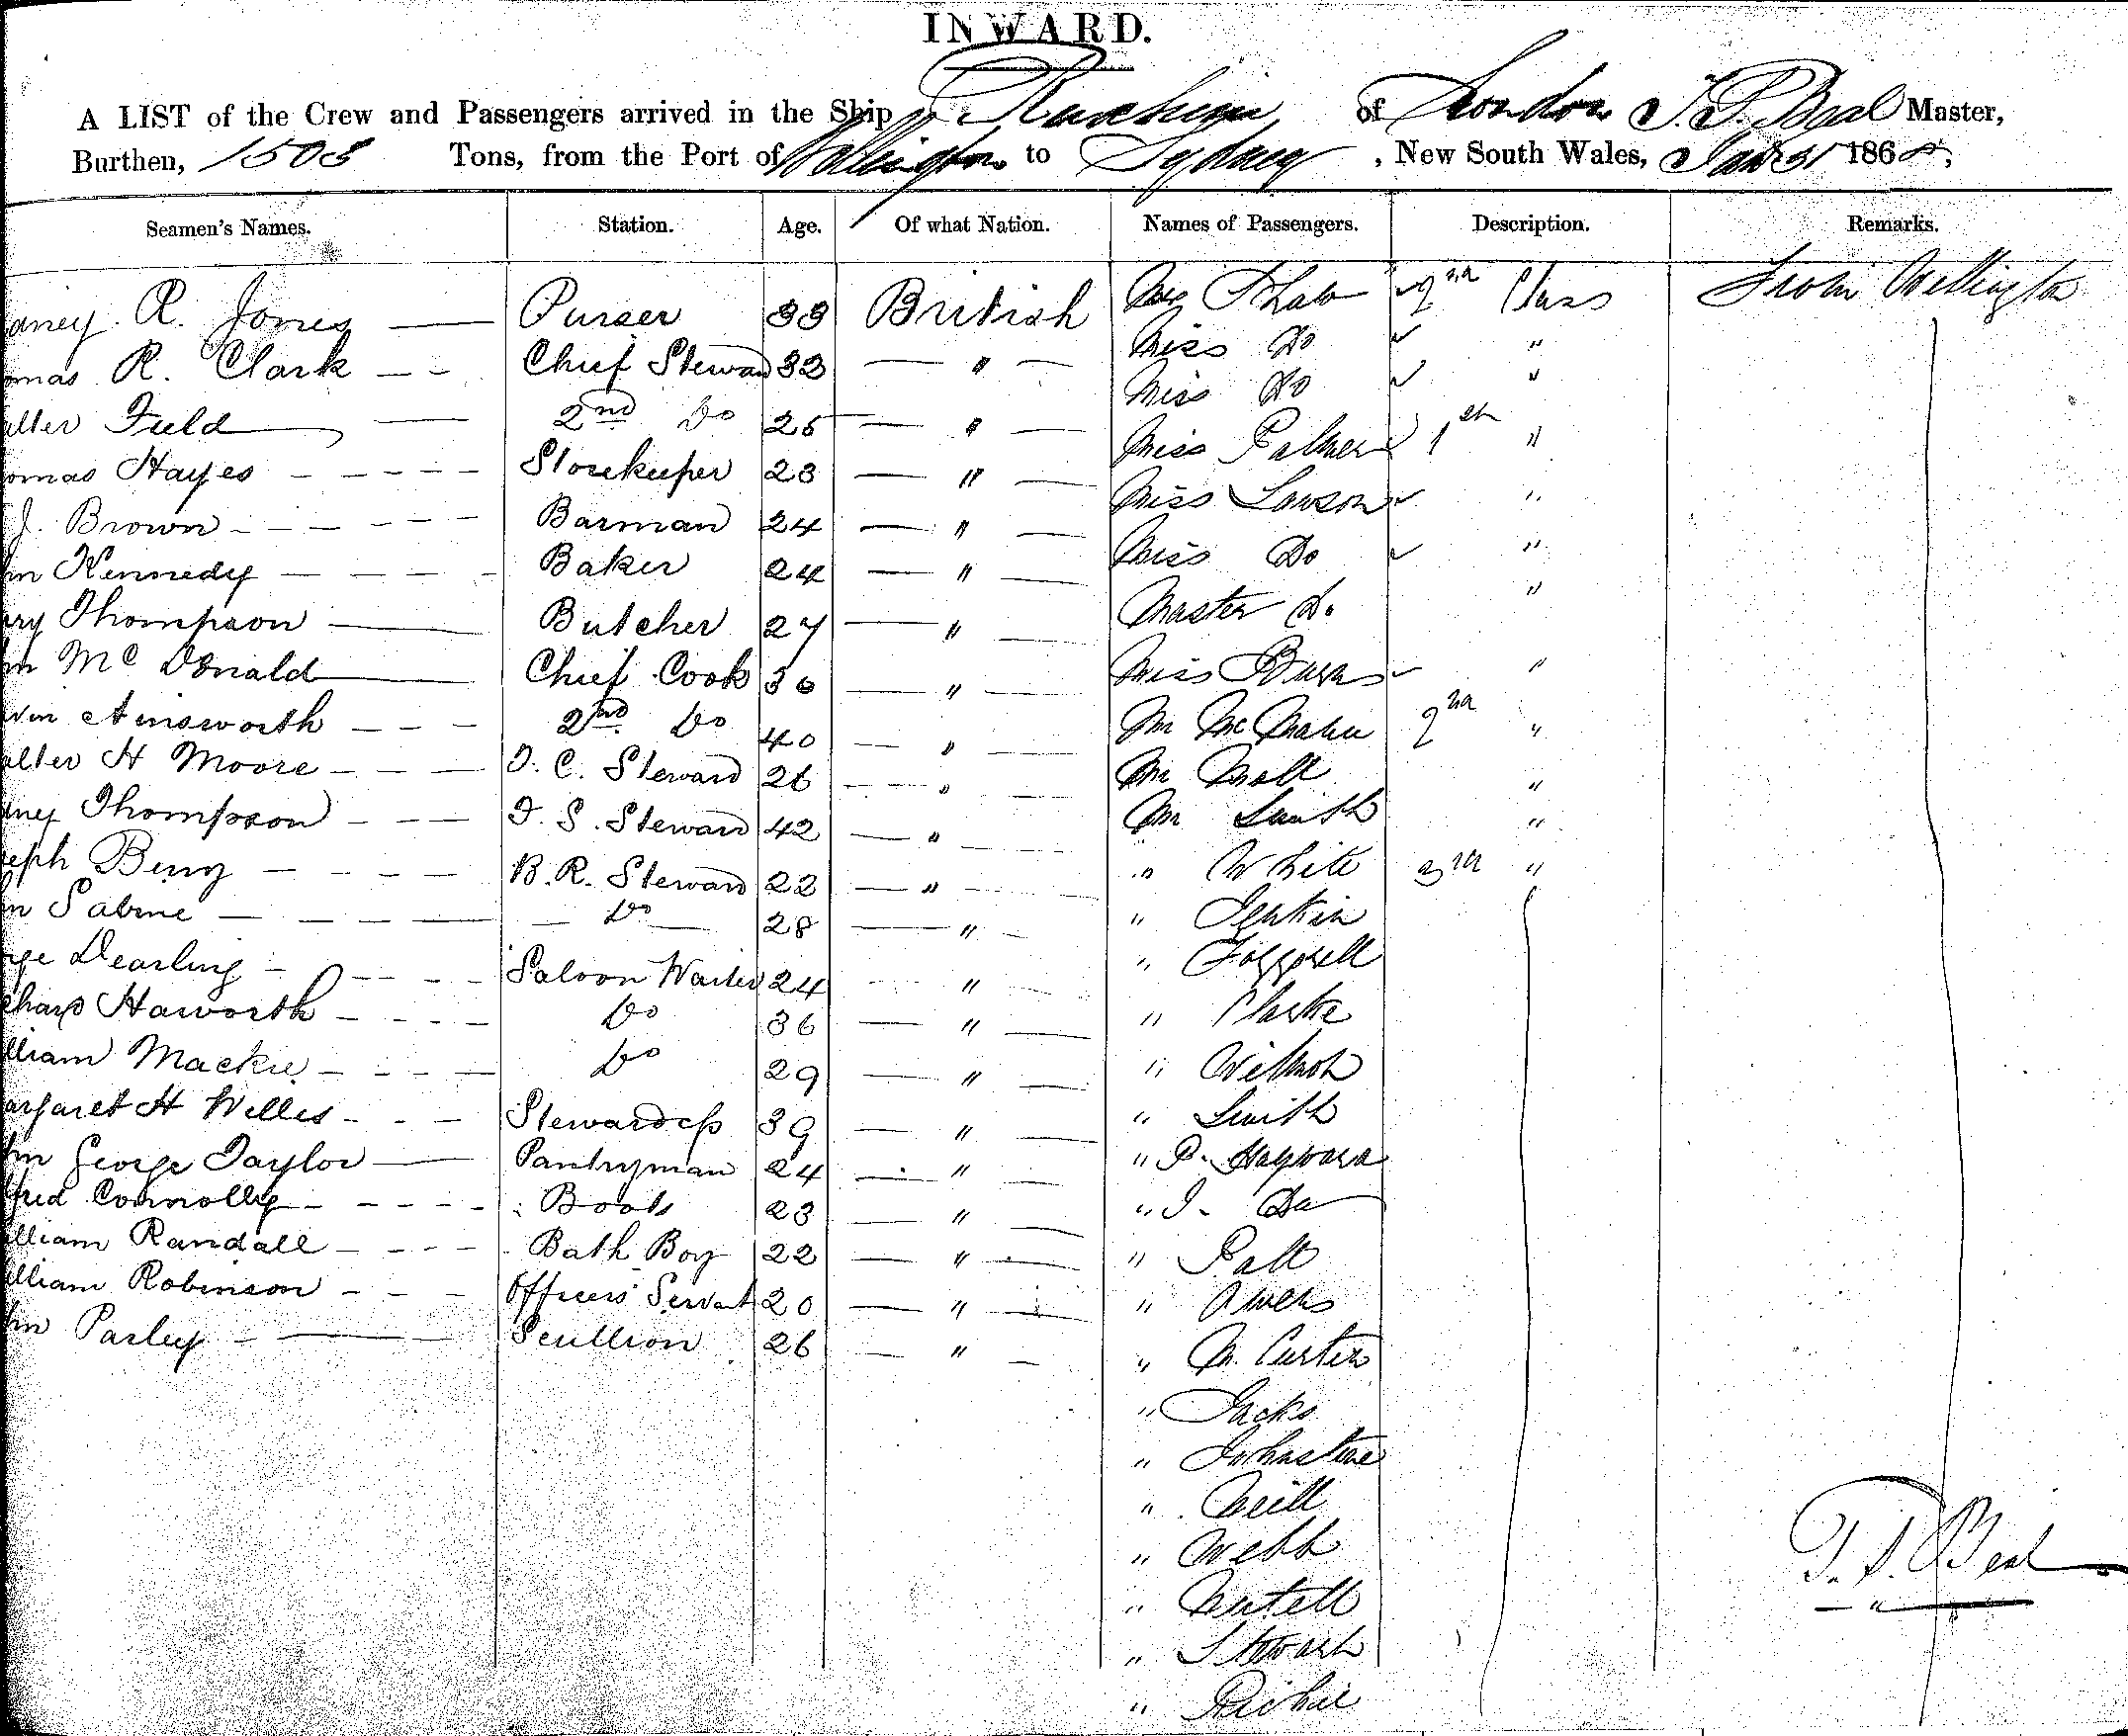 INWARD.
A LIST of the Crew and Passengers arrived in the Ship of London Master,
Burthen, 1503 Tons, from the Port of Wellington to Sydney, New South Wales, Jan 31 1868,
Seamen's Names. Station. Age. Of what Nation. Names of Passengers. Description. Remarks.
dney. R. Jones — Purser 33 British Mrs Shaw 2nd Class From Wellington
omas R. Clark — — Chief Steward 33 — " — Miss Do "
alter Field — 2nd Do 25 — " — Miss Do "
omas Hayes — — — — Storekeeper 23 — " — Miss Palmer 1st "
J. Brown — — — — — Barman 24 — " — Miss Lawson "
hn Kennedy — — — — Baker 24 — " — Miss Do "
ary Thompson — Butcher 27 — " — Master Do "
hn McDonald — Chief Cook 36 — " — Miss "
win Ainsworth — — — 2nd Do 40 — " — Mr 2nd "
alter H Moore — — — Steward 26 — " — Mr "
dney Thompson — — — Steward 42 — " — Mr Smith "
seph — — — — B. R. Steward 22 — " — " White 3rd "
hn Sabine — — — — Do 28 — " — " Jenkin
rge Dearling — — — — Saloon Waiter 24 — " — "
chard Haworth — — — — Do 36 — " — " Clarke
lliam Mackie — — — — Do 29 — " — " Wilmot
argaret H Willis — — — Stewardess 39 — " — " Smith
hn George Taylor — Pantryman 24 — " — " P. Hayward
fred Connolly — — — — Boots 23 — " — " J. Do
lliam Randall — — — — Bath Boy 22 — " — "
illiam Robinson — — — Officers Servant 20 — " — " Owens
hn Parley — — Scullion 26 — " — " M. Curtin
" Jacks
" Johnstone
" Neill
" Webb
"
" Stewart
" Richie
T. S. Beal